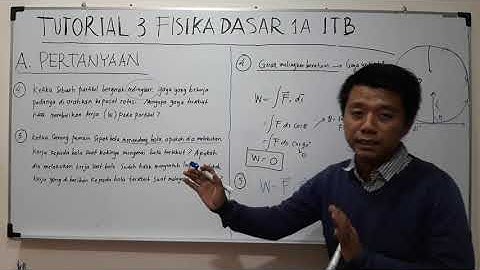 TUTORIAL 3 FISIKA DASAR 1A ITB
A. PERTANYAAN
④ Ketika sebuah partikel bergerak melingkar, gaya yang bekerja
padanya di arahkan ke pusat rotasi. Mengapa gaya tersebut
tidak memberikan kerja (W) pada partikel?
⑤ Ketika seorang pemain sepak bola menendang bola, apakah dia melakukan
kerja kepada bola saat kakinya mengenai bola tersebut? Apakah
dia melakukan kerja saat bola sudah tidak menyentuh
kerja yang diberikan kepada bola tersebut saat
④ Gerak melingkar beraturan → Gaya
W = ∫ F . ds
= ∫ F ds cos θ
= ∫ F ds cos 90°
W = 0
⑤ W = F